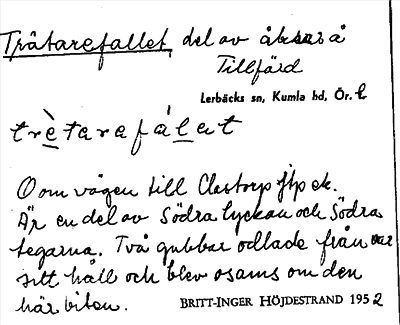 Tråtarefallet, del av åkrar å
Tillfärd
Lerbäcks sn, Kumla hd, Ör. l
trètarefálet
O om vägen till Clastorp jtp ek.
Är en del av Södra lyckan och Södra
tegarna. Två gubbar odlade från var
sitt håll och blev osams om den
här biten.
BRITT-INGER HÖJDESTRAND 1952